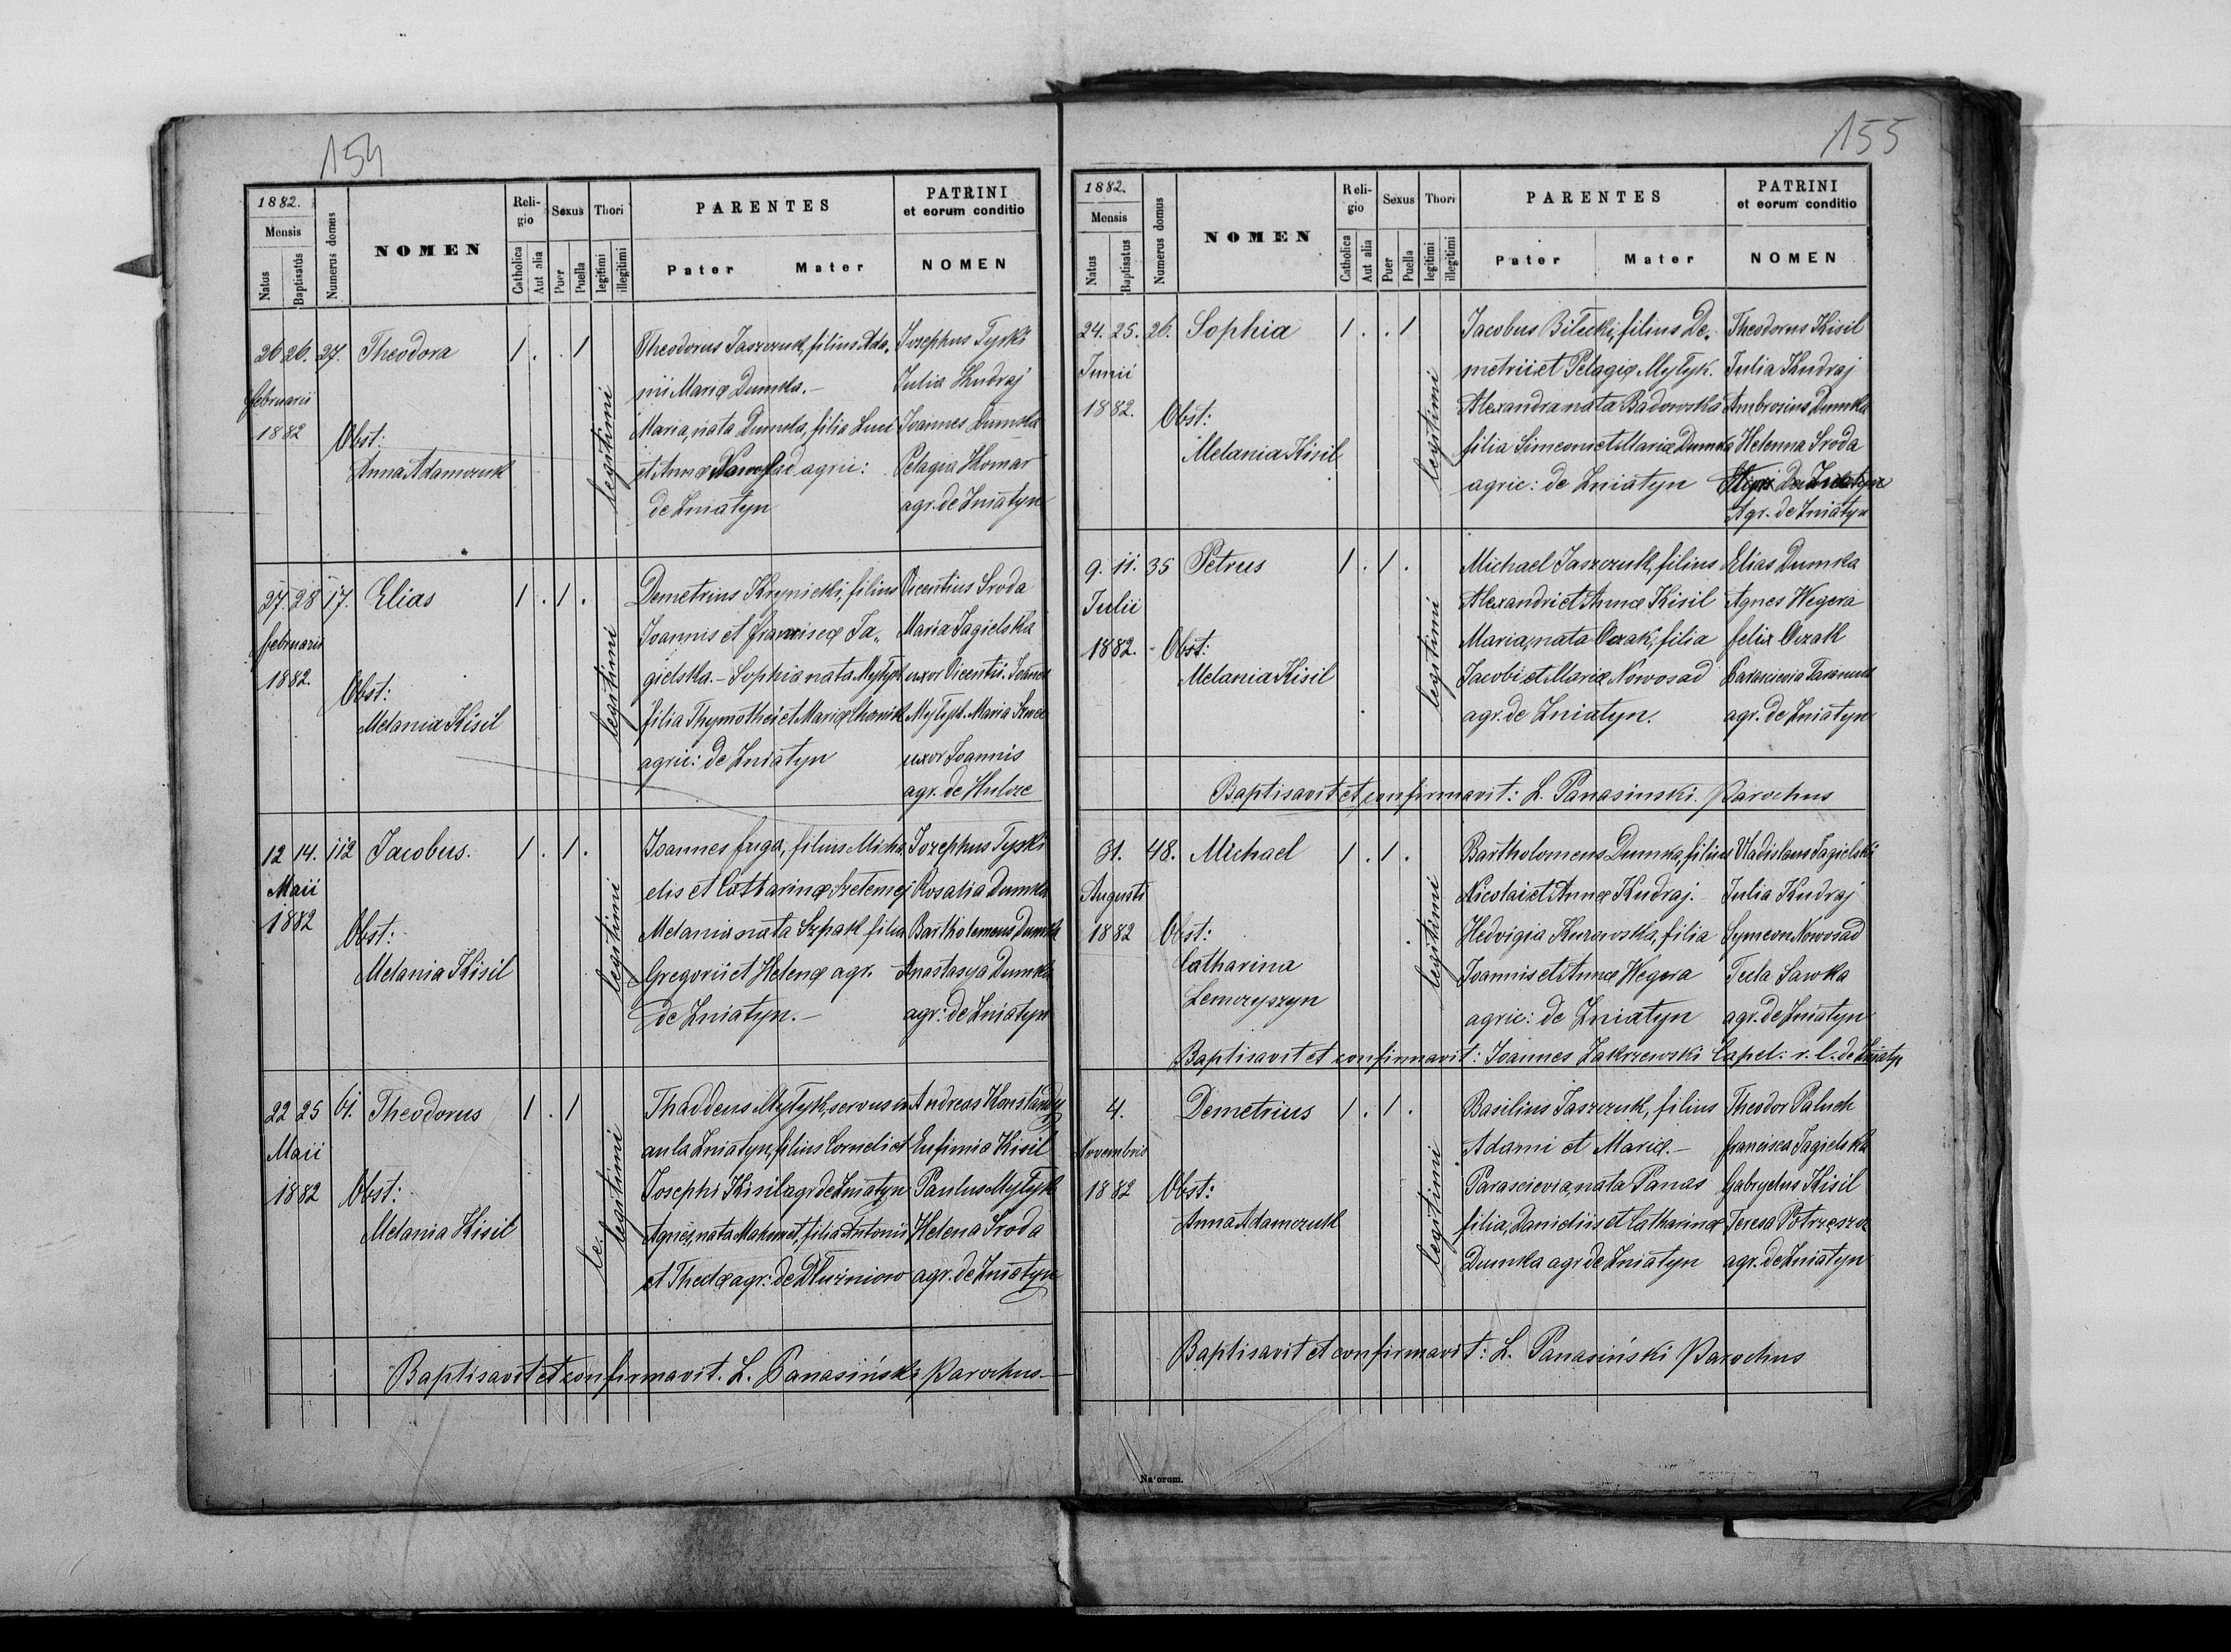 154
1882.
Mensis
Natus
Baptisatus
Numerus domus
NOMEN
Religio
Catholica
Aut alia
Sexus
Puer
Puella
Thori
legitimi
illegitimi
PARENTES
Pater Mater
PATRINI
et eorum conditio
NOMEN
26 26. 27. Theodora 1 . . 1
Februarii
1882
Obst:
Anna Adamczuk
legitimi
Theodorus Jaszczuk, filius Ada-
mi Mariæ Dumka.-
Maria, nata Dumka, filia Luci
et Annæ Nowosad agric:
de Zniatyn
Josephus Tyski
Julia Kudraj
Joannes Dumka
Pelagia Homar
agr. de Zniatyn
27. 28 17. Elias 1 . 1 .
Februarii
1882.
Obst:
Melania Kisil
legitimi
Demetrius Krynicki, filius
Joannis et Franciscæ Ja-
gielska.- Sophia nata Mytyk
filia Thymothei et Mariæ
agric: de Zniatyn
Vicentius Sroda
Maria Jagielska
uxor Vicentii. Joannes
Mytyk. Maria
uxor Joannis
agr. de Hulcze
12 14. 112 Jacobus. 1 . 1 .
Maii
1882
Obst:
Melania Kisil
legitimi
Joannes Fuga, filius Micha
elis et Catharinæ Szetemej
Melania nata Szpak filia
Gregorii et Helenæ agr.
de Zniatyn.-
Jozephus Tyski
Rosalia Dumka
Bartholemeus Dumka
Anastasya Dumka
agr: de Zniatyn
22 25 61. Theodorus 1 . 1
Maii
1882
Obst:
Melania Kisil
le.
legitimi
Thaddeus Mytyk, servus in
aula Zniatyn, filius Corneli et
Josephi Kisil agr de Zniatyn
Agnes, nata Mahmet, filia Antonii
et Theclæ agr: de Dłużniow
Andreas Konstandy
Eufimia Kisil
Paulus Mytyk
Helena Sroda
agr. de Zniatyn
Baptisavit et confirmavit. L. Panasiński Parochus.
155
1882.
Mensis
Natus
Baptisatus
Numerus domus
NOMEN
Religio
Catholica
Aut alia
Sexus
Puer
Puella
Thori
legitimi
illegitimi
PARENTES
Pater Mater
PATRINI
et eorum conditio
NOMEN
24. 25. 26. Sophia 1 . . 1
Junii
1882.
Obst:
Melania Kisil
legitimi
Jacobus Bilecki, filius De-
metrii et Pelagiæ Mytyk.
Alexandra nata Badowska
filia Simeoni et Mariæ Dumka
agric: de Zniatyn
Theodorus Kisil
Julia Kudraj
Ambrosius Dumka
Helenna Sroda
Agr. de Zniatyn
9. 11. 35 Petrus 1 . 1 .
Julii
1882.
Obst:
Melania Kisil
legitimi
Michael Jaszczuk, filius
Alexandri et Annæ Kisil
Maria, nata Ozak, filia
Jacobi et Mariæ Nowosad
agr. de Zniatyn.
Elias Dumka
Agnes Wegera
Felix Ozak
agr. de Zniatyn
Baptisavit et confirmavit: L. Panasinski. Parochus
31. 48. Michael 1 . 1 .
Augusti
1882
Obst:
Catharina
Lemczyszyn
legitimi
Bartholomeus Dumka, filius
Nicolai et Annæ Kudraj.
Hedvigia Kurawska, filia
Joannis et Annæ Wegera
agric: de Zniatyn
Vladislaus Jagielski
Julia Kudraj
Symeon Nowosad
Tecla Sawka
agr. de Zniatyn
Baptisavit et confirmavit: Joannes Zakrzewski Capel. r. l. de Zniatyn
4. Demetrius 1 . 1 .
Novembris
1882
Obst:
Anna Adamczuk
legitimi
Basilius Jaszczuk, filius
Adami et Mariæ.-
Parascievia, nata Panas
filia, Danielii et Catharinæ
Dumka agr de Zniatyn
Theodor Paluch
Francisca Jagielska
Gabryelus Kisil
Teresa Potrzeszcz
agr. de Zniatyn
Baptisavit et confirmavit: L. Panasiński Parochus
Natorum.